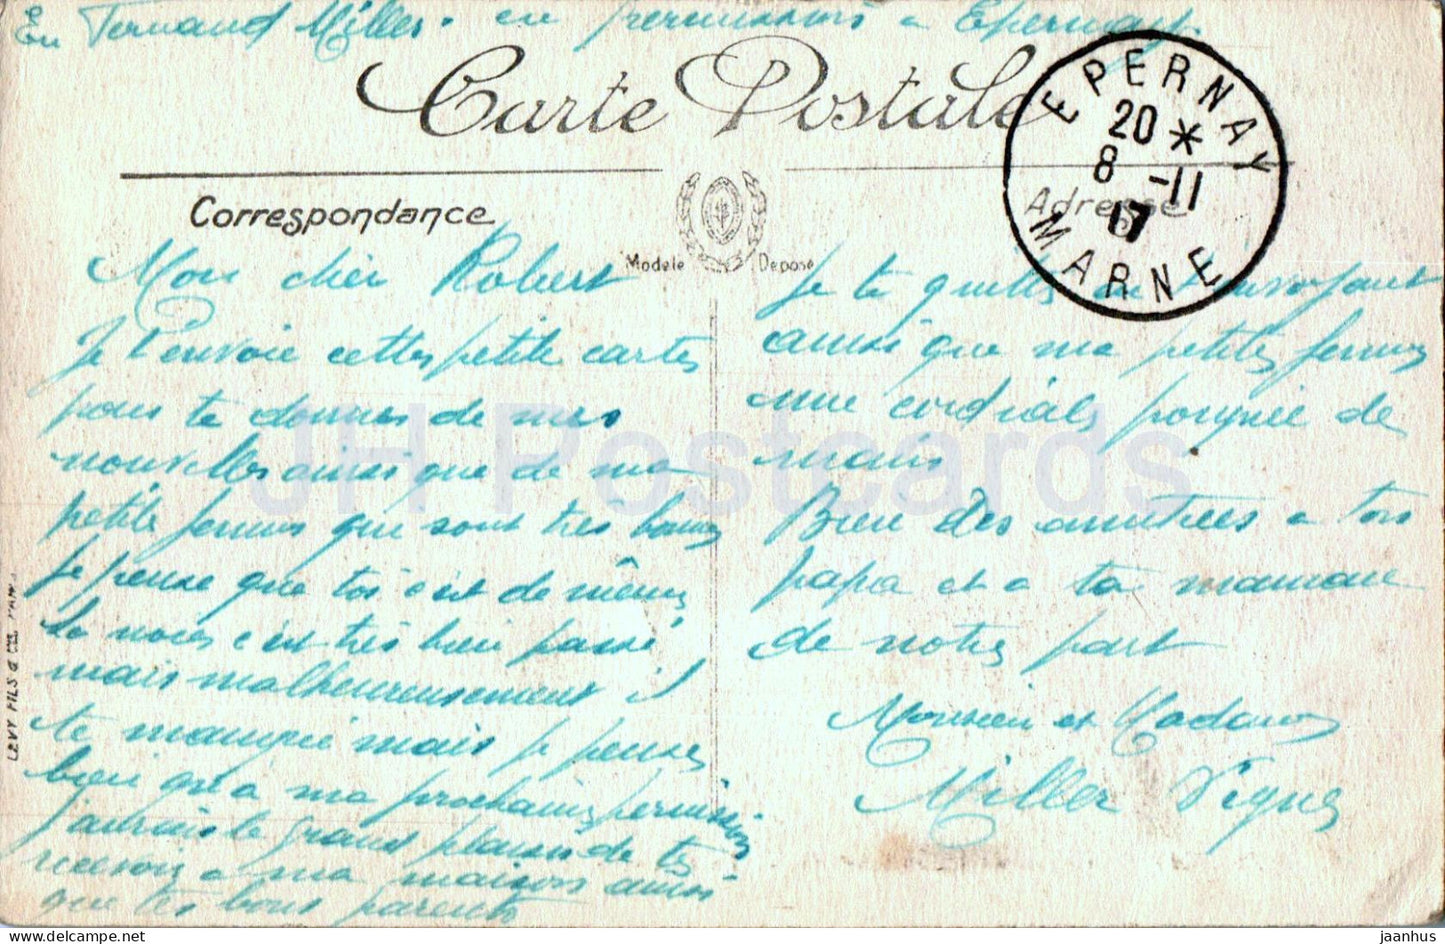 Fernand Miller. en permissions a Epernay.
Carte Postale
EPERNAY
20 *
8 -11
17
MARNE
Correspondance
Adresse
Modèle Déposé
Mon cher Robert
Je t'envoie cettes petite cartes
pour te donnes de mes
nouvelles ainsi que de ma
petite femme qui sont très bonnes
Je pense que toi c'est de mêmes
la noces c'est très bien passé
mais malheureusement il
te manquie mais je penses
bien qu'a ma prochaines permissions
j'aurais le grand plaisir de te
recevoir a ma maison ainsi
que tes bons parents
Je te quittes en
ainsi que ma petites femmes
une cordials poignée de
mains
Bien des amitiées a ton
papa et a ta maman
de notre part
Monsieur et Madame
Miller
LEVY FILS & CIE. PARIS
JH Postcards
delcampe.net
jaanhus